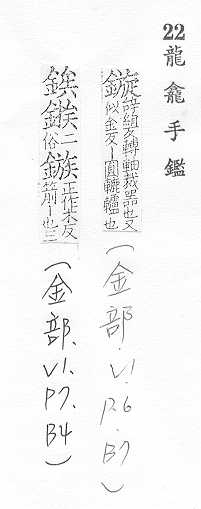 22 龍龕手鑑
鏇 反轉軸裁器也又
似全反｜圓轆轤也
(金部.V1.P6.B7)
二俗鏃正作木反
箭｜也三
(金部.V1.P7.B4)